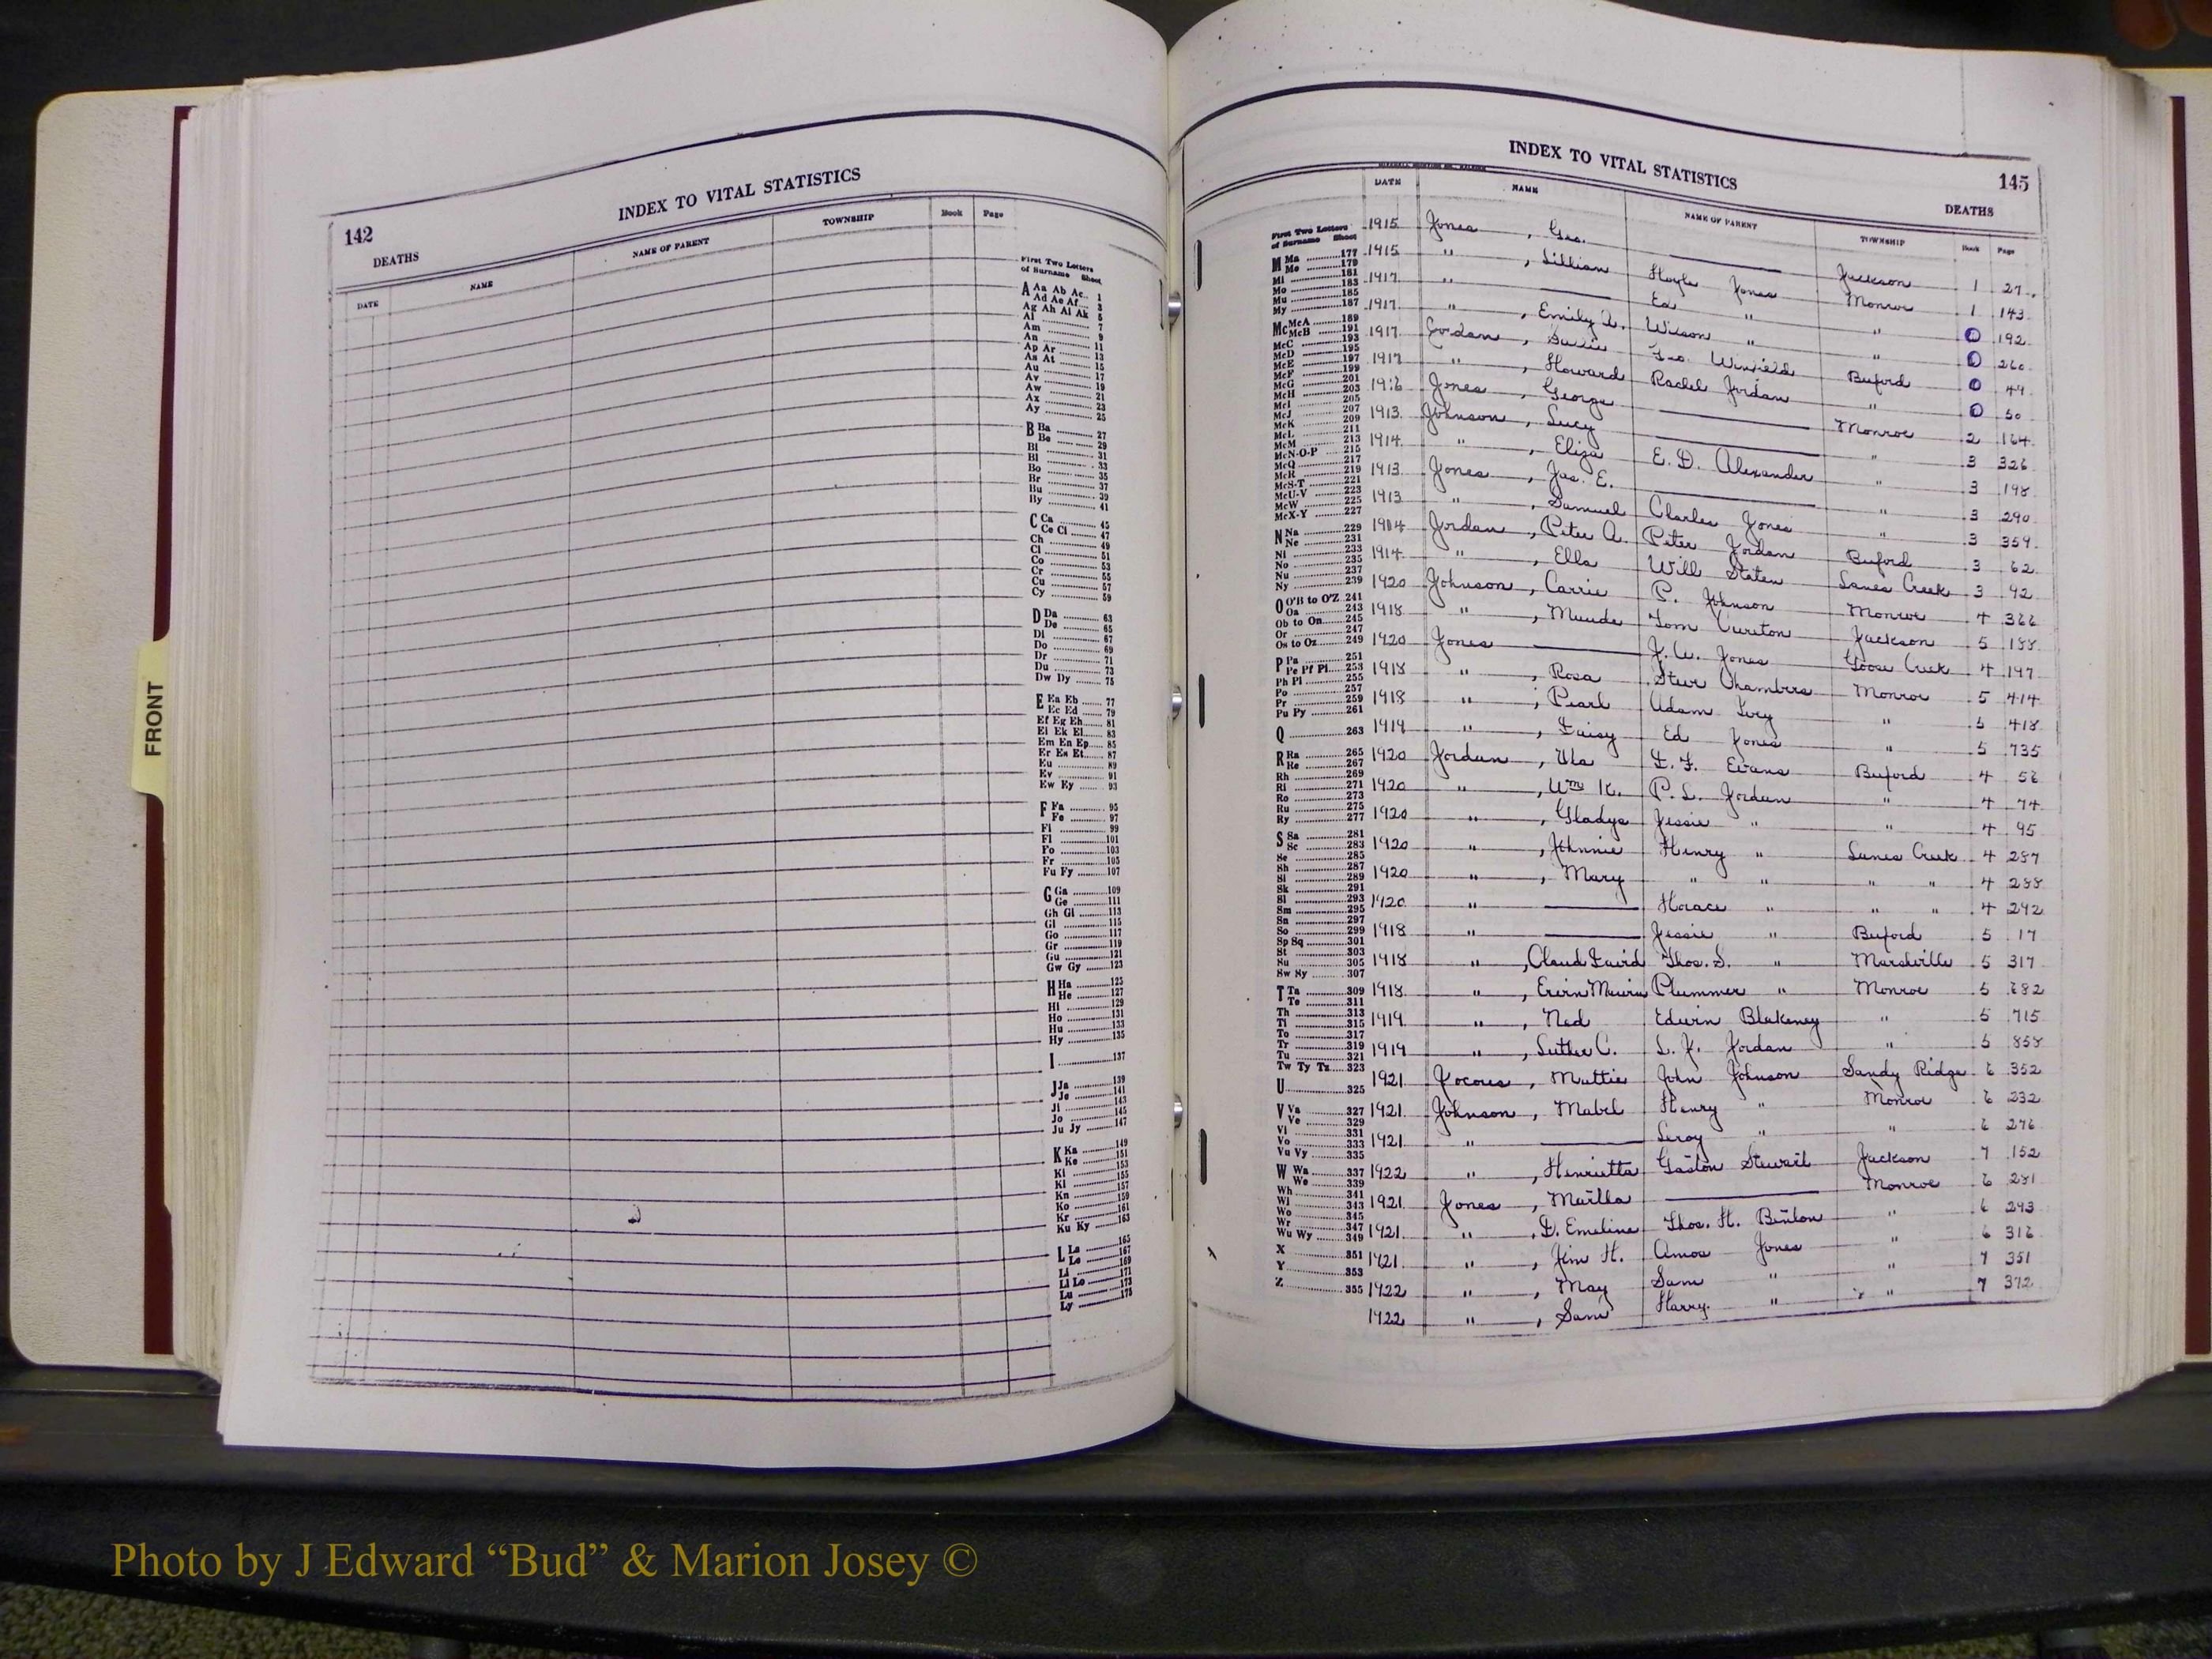 INDEX TO VITAL STATISTICS
142
DEATHS
DATE NAME NAME OF PARENT TOWNSHIP Book Page
First Two Letters
of Surname Sheet
A Aa Ab Ac 1
Ad Ae Af 3
Ag Ah Ai Ak 5
Al 7
Am 9
An 11
Ap Ar 13
As At 15
Au 17
Av 19
Aw 21
Ax 23
Ay 25
B Ba 27
Be 29
Bi 31
Bl 33
Bo 35
Br 37
Bu 39
By 41
C Ca 45
Ce Ci 47
Ch 49
Cl 51
Co 53
Cr 55
Cu 57
Cy 59
D Da 63
De 65
Di 67
Do 69
Dr 71
Du 73
Dw Dy 75
E Ea Eb 77
Ec Ed 79
Ef Eg Eh 81
Ei Ek El 83
Em En Ep 85
Er Es Et 87
Eu 89
Ev 91
Ew Ey 93
F Fa 95
Fe 97
Fi 99
Fl 101
Fo 103
Fr 105
Fu Fy 107
G Ga 109
Ge 111
Gh Gi 113
Gl 115
Go 117
Gr 119
Gu 121
Gw Gy 123
H Ha 125
He 127
Hi 129
Ho 131
Hu 133
Hy 135
I 137
J Ja 139
Je 141
Ji 143
Jo 145
Ju Jy 147
K Ka 149
Ke 151
Ki 153
Kl 155
Kn 157
Ko 159
Kr 161
Ku Ky 163
L La 165
Le 167
Li 169
Ll Lo 171
Lu 173
Ly 175
INDEX TO VITAL STATISTICS
145
DEATHS
DATE NAME NAME OF PARENT TOWNSHIP Book Page
First Two Letters
of Surname Sheet
M Ma 177
Me 179
Mi 181
Mo 183
Mu 185
My 187
Mc McA 189
McB 191
McC 193
McD 195
McE 197
McF 199
McG 201
McH 203
McI 205
McJ 207
McK 209
McL 211
McM 213
McN-O-P 215
McQ 217
McR 219
McS-T 221
McU-V 223
McW 225
McX-Y 227
N Na 229
Ne 231
Ni 233
No 235
Nu 237
Ny 239
O O'B to O'Z 241
Oa 243
Ob to On 245
Or 247
Os to Oz 249
P Pa 251
Pe Pf Pl 253
Ph Pl 255
Po 257
Pr 259
Pu Py 261
Q 263
R Ra 265
Re 267
Rh 269
Ri 271
Ro 273
Ru 275
Ry 277
S Sa 281
Sc 283
Se 285
Sh 287
Si 289
Sk 291
Sl 293
Sm 295
Sn 297
So 299
Sp Sq 301
St 303
Su 305
Sw Sy 307
T Ta 309
Te 311
Th 313
Ti 315
To 317
Tr 319
Tu 321
Tw Ty Tz 323
U 325
V Va 327
Ve 329
Vi 331
Vo 333
Vu Vy 335
W Wa 337
We 339
Wh 341
Wi 343
Wo 345
Wr 347
Wu Wy 349
X 351
Y 353
Z 355
1915 Jones, Geo. Jackson 1 27
1915 ", Lillian Hoyle Jones Monroe 1 143
1917 " Ed " " 192
1917 ", Emily Wilson " " 260
1917 Jordan, Sallie Winfield Buford 49
1917 ", Howard Rachel Jordan " 50
Jones, George Monroe 2 164
1913 Johnson, Lucy " 3 326
1914 ", Eliza E. D. Alexander " 3 198
1913 Jones, Jas. E. " 3 290
1913 ", Samuel Charles Jones " 3 359
1914 Jordan, Peter A. Peter Jordan Buford 3 62
1914 ", Ella Will Staten Lanes Creek 3 92
1920 Johnson, Carrie P. Johnson Monroe 4 366
1918 ", Maude Tom Cureton Jackson 5 188
1920 Jones J. W. Jones Goose Creek 4 197
1918 ", Rosa Steve Chambers Monroe 5 414
1918 ", Pearl Adam Ivey " 5 418
1919 ", Daisy Ed Jones " 5 735
1920 Jordan, Ula Evans Buford 4 56
1920 ", Wm K. P. L. Jordan " 4 74
1920 ", Gladys Jessie " " 4 95
1920 ", Johnnie Henry " Lanes Creek 4 287
1920 ", Mary " " " " 4 288
1920 " Horace " " " 4 292
1918 " Jessie " Buford 5 17
1918 ", Claud David Thos. S. " Marshville 5 317
1918 ", Ervin Plummer " Monroe 5 682
1919 ", Ned Edwin Blakeney " 5 715
1919 ", Luther C. L. J. Jordan " 5 858
1921 , Mattie John Johnson Sandy Ridge 6 352
1921 Johnson, Mabel Henry " Monroe 6 232
1921 " Leroy " " 6 276
1922 ", Henrietta Gaston Stewart Jackson 7 152
1921 Jones, Monroe 6 281
1921 ", D. Emeline Thos. H. Benton " 6 293
1921 ", Jim H. Amos Jones " 6 316
1922 ", May Sam " " 7 351
1922 ", Sam Harry " " 7 372
FRONT
Photo by J Edward “Bud” & Marion Josey ©